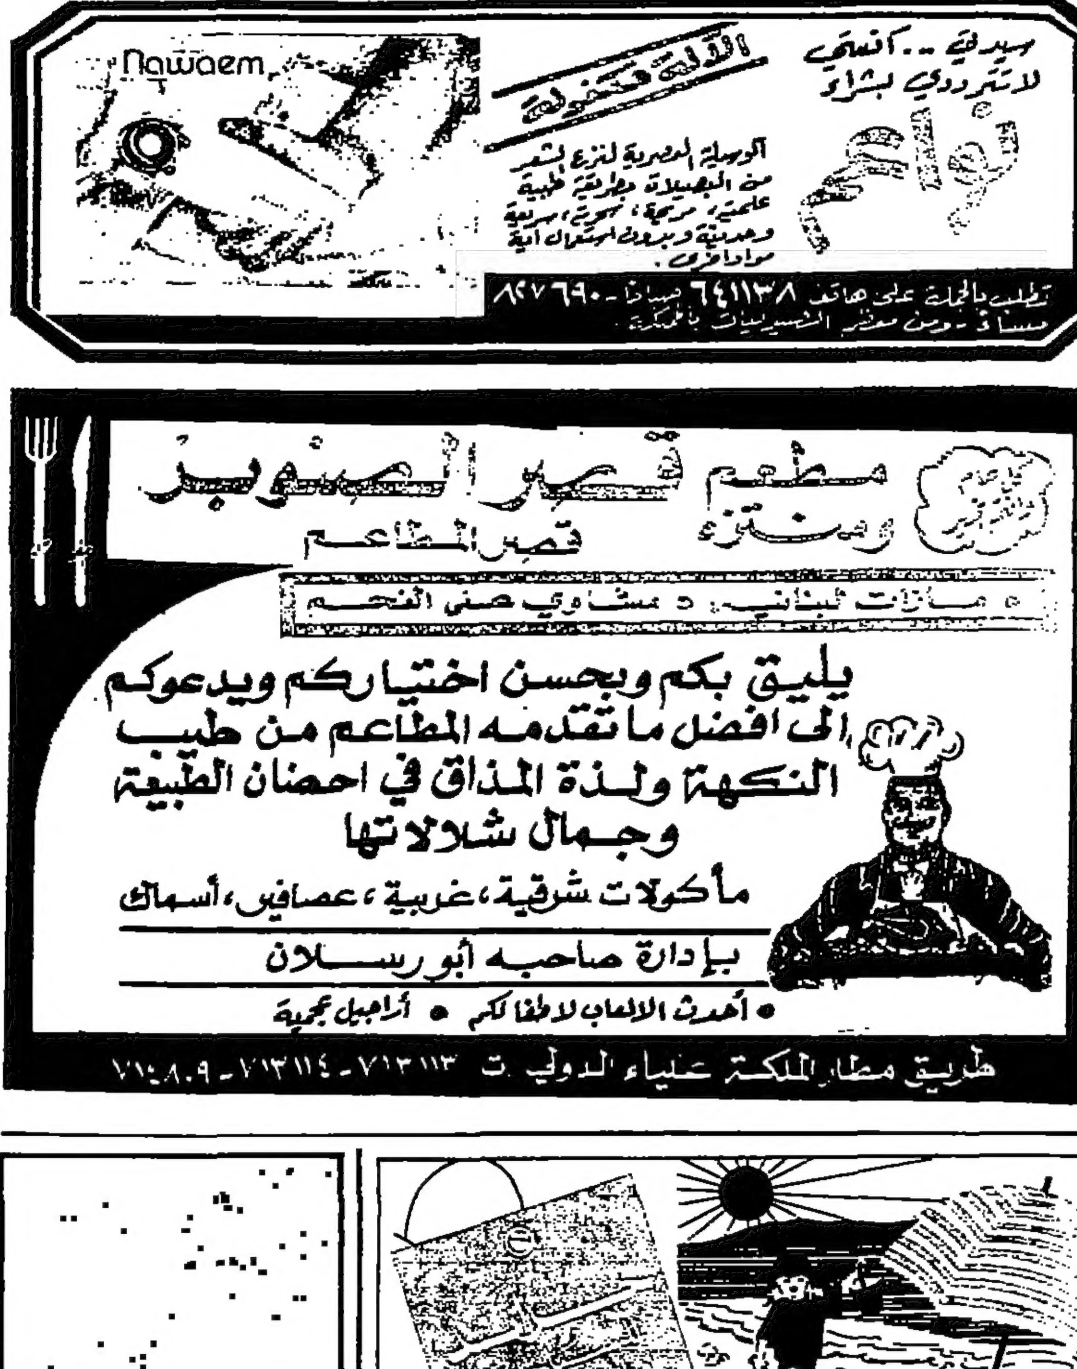 Nawaem
سيدتي .. آنستي
لا تترددي بشراء
نواعم
آلة مكفولة
الوسيلة العصرية لنزع الشعر
من البصيلات بطريقة طبية
علمية، مريحة، سريعة
وحديثة وبدون استعمال أية
مواد أخرى.
تطلب بالجملة على هاتف ٦٤١١٣٨ صباحا - ٨٢٧٦٩٠
مساء - ومن معظم الصيدليات بالمملكة.
مطعم قصر الصنوبر
ومنتزه قصر المطاعم
مازات لبنانية ٥ مشاوي على الفحم
يليق بكم وبحسن اختياركم ويدعوكم
إلى افضل ما تقدمه المطاعم من طيب
النكهة ولذة المذاق في احضان الطبيعة
وجمال شلالاتها
مأكولات شرقية، غربية، عصافير، أسماك
بإدارة صاحبه أبو رسلان
• أحدث الالعاب لاطفالكم • أراجيل عجمية
طريق مطار الملكة علياء الدولي ت ٧١٣١١٣ - ٧١٣١١٤ - ٧١٤٨٠٩